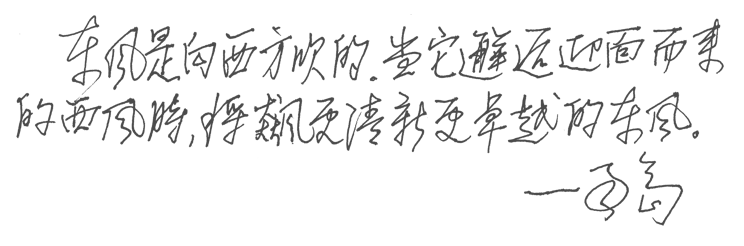 东风是向西方吹的.当它邂逅迎面而来
的西风时,择飙更清新更卓越的东风。
一 子 高